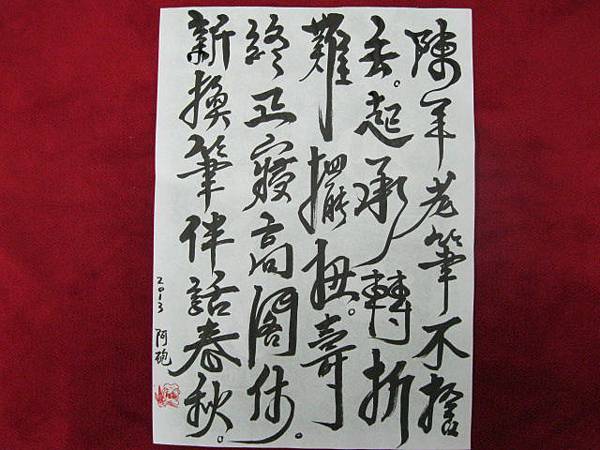 陳年老筆不捨
丟。起承轉折
難擺扭。壽
終正寢高閣休。
新換筆伴話春秋。
2013 阿砲